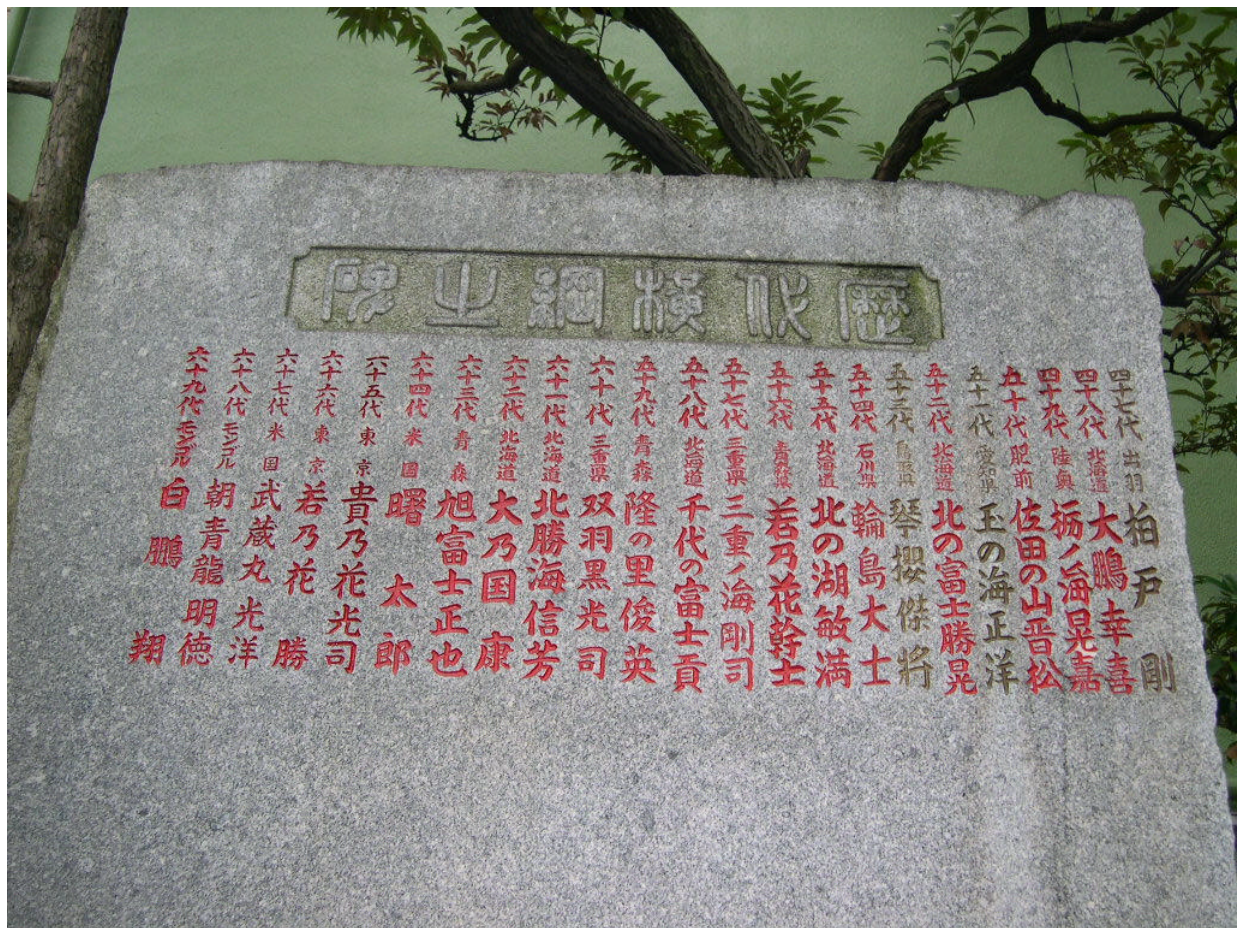 歴代横綱之碑
四十七代 出羽 柏戸剛
四十八代 北海道 大鵬幸喜
四十九代 陸奥 栃ノ海晃嘉
五十代 肥前 佐田の山晋松
五十一代 愛知県 玉の海正洋
五十二代 北海道 北の富士勝晃
五十三代 鳥取県 琴櫻傑將
五十四代 石川県 輪島大士
五十五代 北海道 北の湖敏満
五十六代 青森県 若乃花幹士
五十七代 三重県 三重ノ海剛司
五十八代 北海道 千代の富士貢
五十九代 青森 隆の里俊英
六十代 三重県 双羽黒光司
六十一代 北海道 北勝海信芳
六十二代 北海道 大乃国康
六十三代 青森 旭富士正也
六十四代 米国 曙太郎
六十五代 東京 貴乃花光司
六十六代 東京 若乃花勝
六十七代 米国 武蔵丸光洋
六十八代 モンゴル 朝青龍明徳
六十九代 モンゴル 白鵬翔